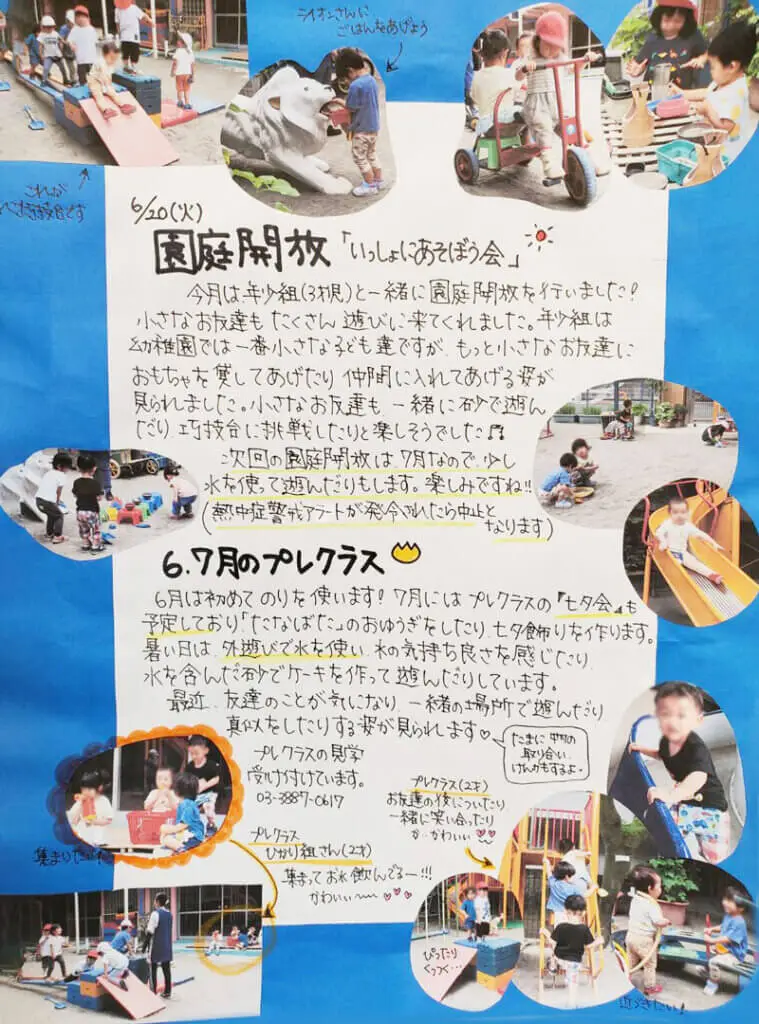 ライオンさんに
ごはんをあげよう
これが
巧技台です
6/20(火)
園庭開放「いっしょにあそぼう会」
今月は年少組(3才児)と一緒に園庭開放を行いました!
小さなお友達もたくさん遊びに来てくれました。年少組は
幼稚園では一番小さな子ども達ですが、もっと小さなお友達に
おもちゃを貸してあげたり仲間に入れてあげる姿が
見られました。小さなお友達も、一緒に砂で遊ん
だり、巧技台に挑戦したりと楽しそうでした♬
次回の園庭開放は、7月なので、少し
水を使って遊んだりもします。楽しみですね!!
(熱中症警戒アラートが発令されたら中止と
なります)
6.7月のプレクラス
6月は初めてのりを使います!7月にはプレクラスの『七夕会』も
予定しており「たなばた」のおゆうぎをしたり、七夕飾りを作ります。
暑い日は、外遊びで水を使い、水の気持ち良さを感じたり、
水を含んだ砂でケーキを作って遊んだりしています。
最近、友達のことが気になり、一緒の場所で遊んだり
真似をしたりする姿が見られます♡
たまに
取り合い、
けんかもするよ。
プレクラスの見学
受け付けています。
03-3887-0617
プレクラス(2才)
お友達の後についたり
一緒に笑い合ったり
か・かわいい♡♡
プレクラス
ひかり組さん(2才)
集まってお水飲んでるー!!!
かわいいー♡♡♡
ぴったり
くっつく…